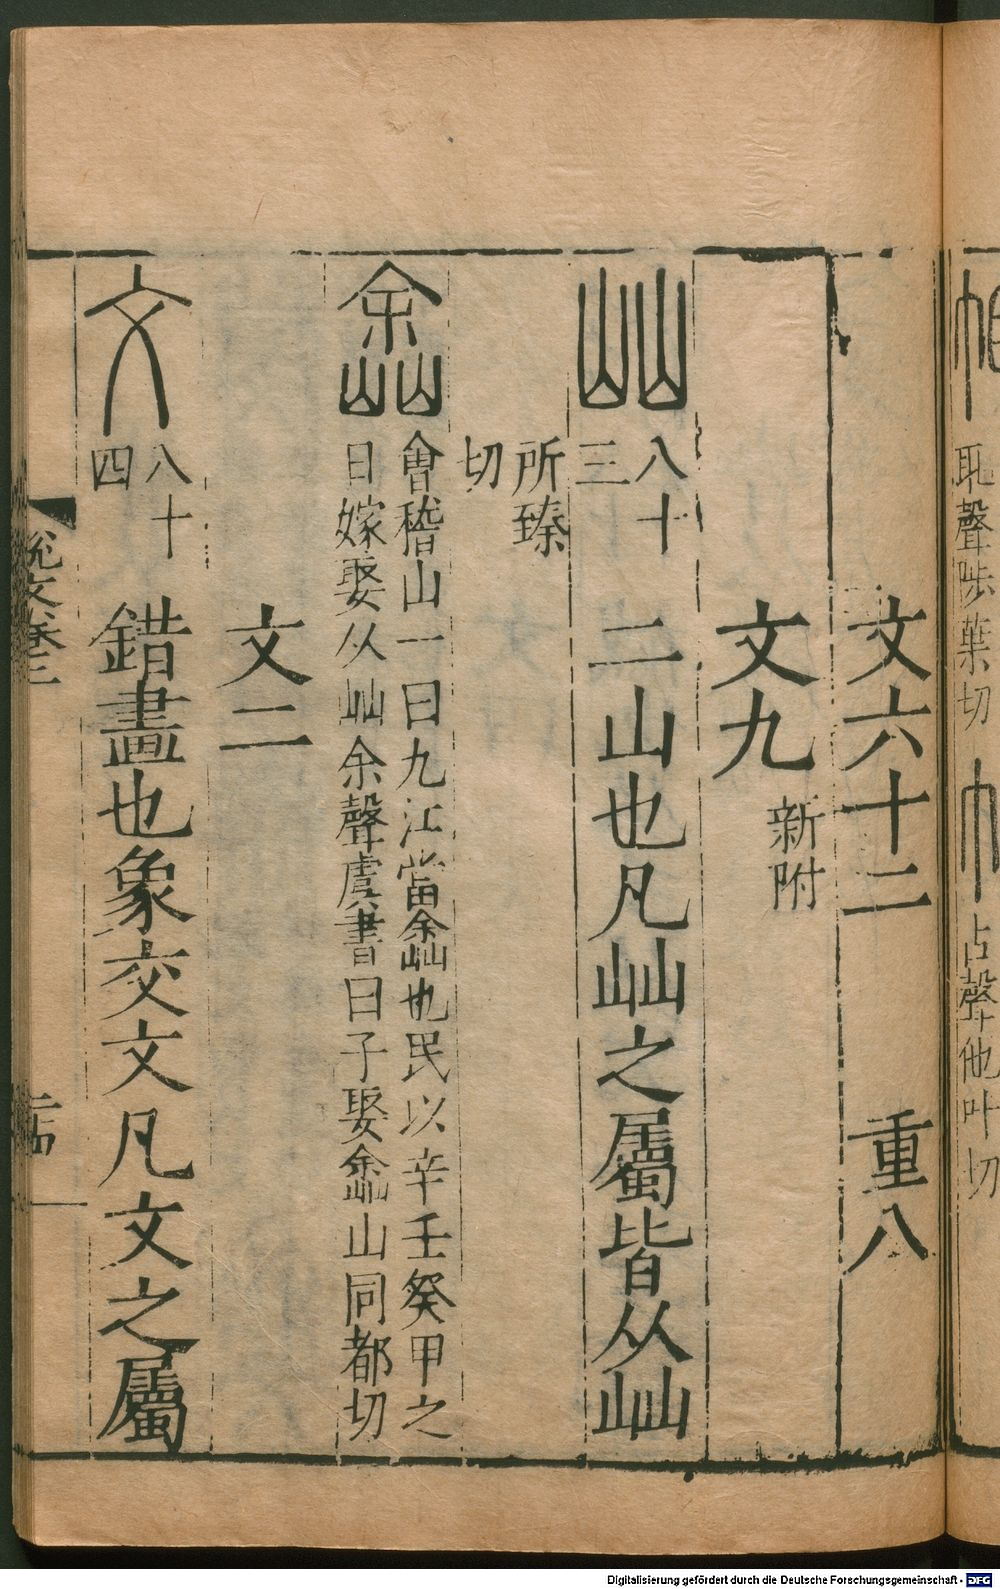 耴聲陟葉切
占聲他叶切
文六十二 重八
文九 新附
屾 八十三 二山也凡屾之屬皆从屾
所臻切
嵞 會稽山一曰九江當嵞也民以辛壬癸甲之
日嫁娶从屾余聲虞書曰子娶嵞山同都切
文二
文 八十四 錯畫也象交文凡文之屬
Digitalisierung gefördert durch die Deutsche Forschungsgemeinschaft - DFG